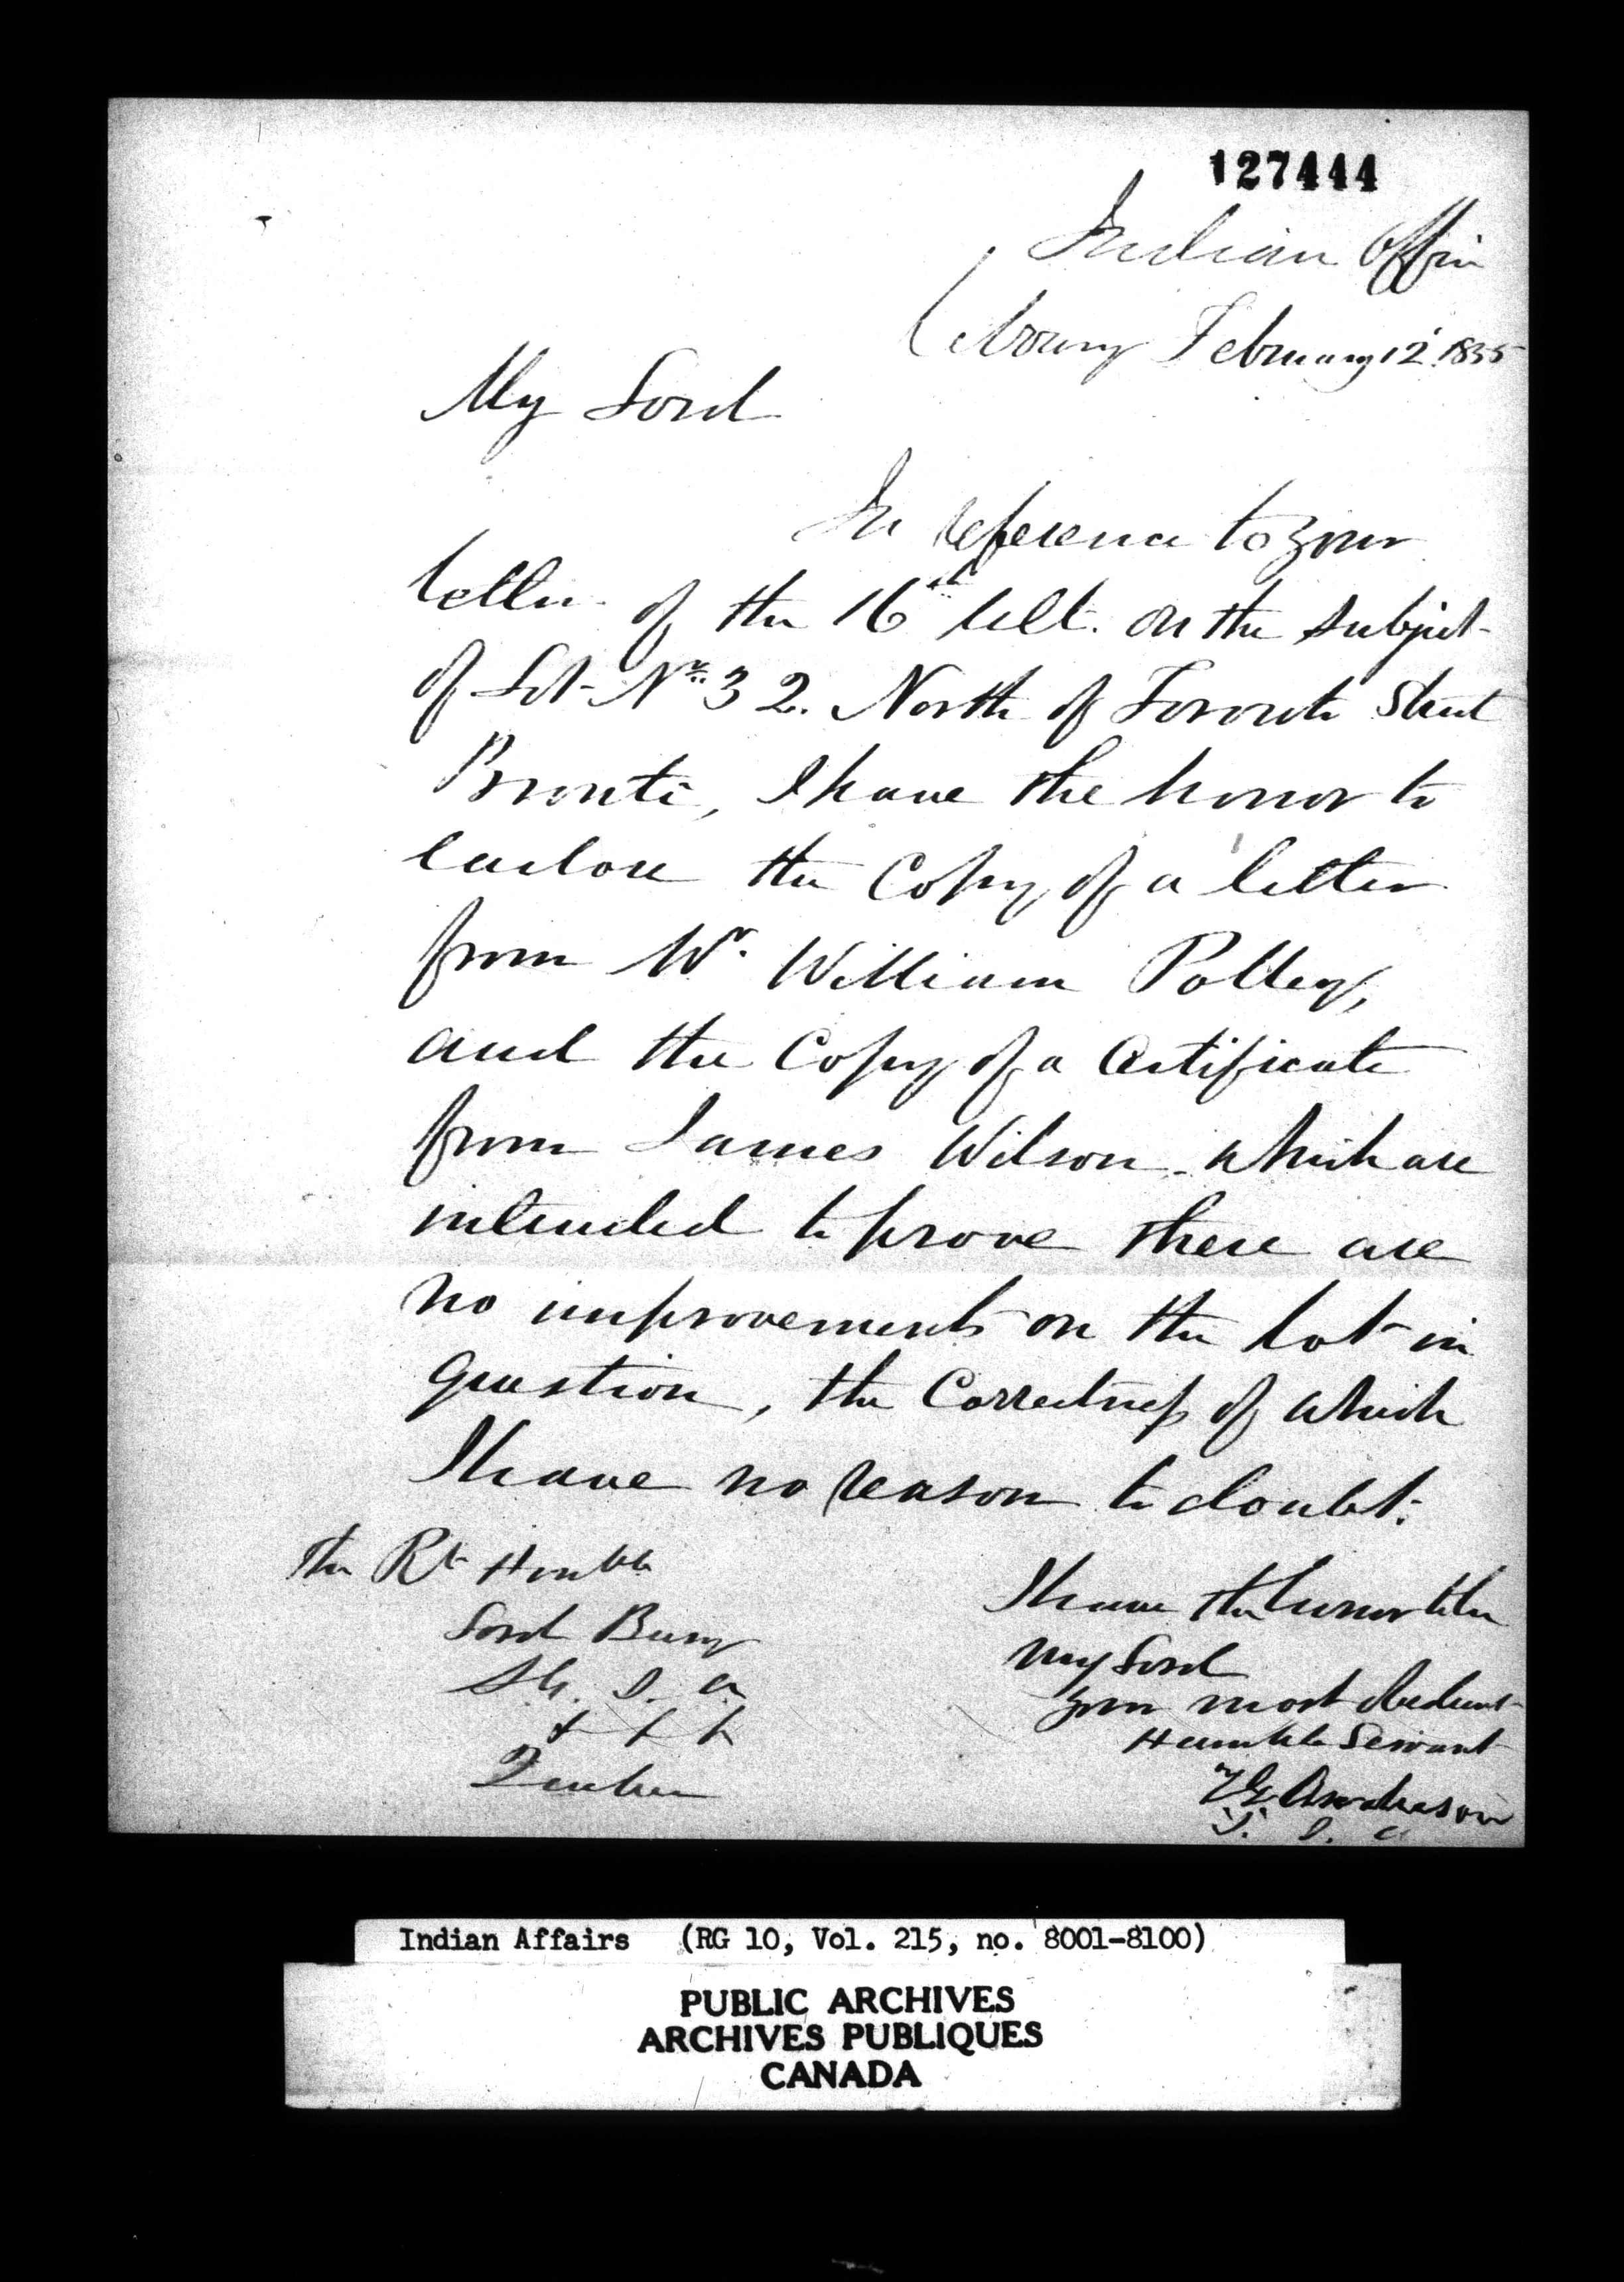 127444
Indian Office
Cobourg February 12th 1855
My Lord
In reference to your
letter of the 16th Ult. on the subject
of Lot No 32. North of Toronto Street
Bronte, I have the honor to
enclose the Copy of a letter
from Mr. William Polley,
and the Copy of a Certificate
from James Wilson which are
intended to prove there are
no improvements on the lot in
question, the Correctness of which
I have no reason to doubt.
The Rt Honble
Lord Bury
S. G. I. A
& & &
Quebec
I have the honor to be
My Lord
your most obedient
Humble Servant
T G Anderson
S. I. A
Indian Affairs (RG 10, Vol. 215, no. 8001-8100)
PUBLIC ARCHIVES
ARCHIVES PUBLIQUES
CANADA